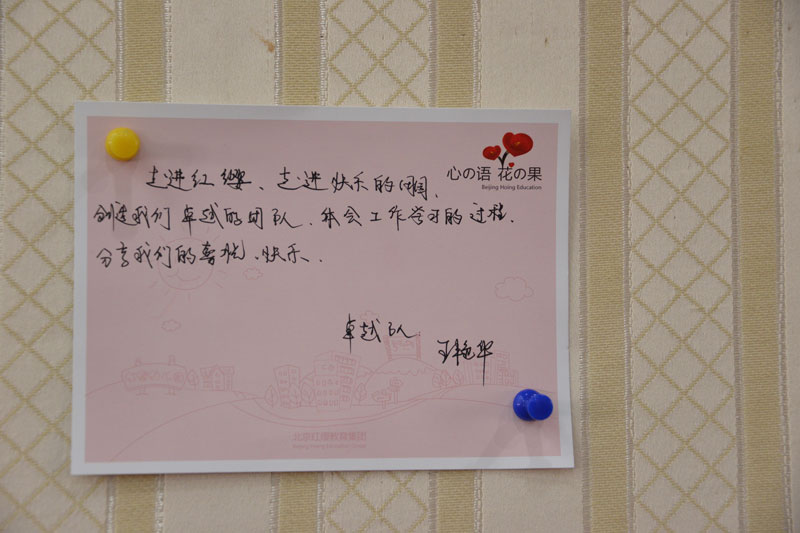 心の语 花の果
Beijing Hoing Education
走进红缨、走进快乐的
创造我们卓越的团队、体会工作学习的过程、
分享我们的喜悦、快乐、
卓越队
王艳华
北京红缨教育集团
Beijing Hoing Education Group